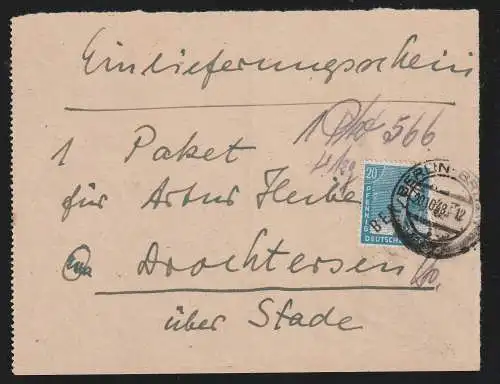 Einlieferungsschein
1 Pkt 566
1 Paket
4 kg
für Artur Heibe
Drochtersen
über Stade
20
PFENNIG
DEUTSCHE
BERLIN
20.10.48
12